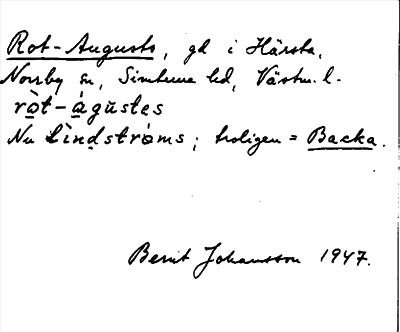 Rot-Augusts, gd i Härsta,
Norrby sn, Simtuna hd, Västm. l.
rò̱t-á̱gŭstes
Nu Lìndströ́ms; troligen = Backa.
Bernt Johansson 1947.